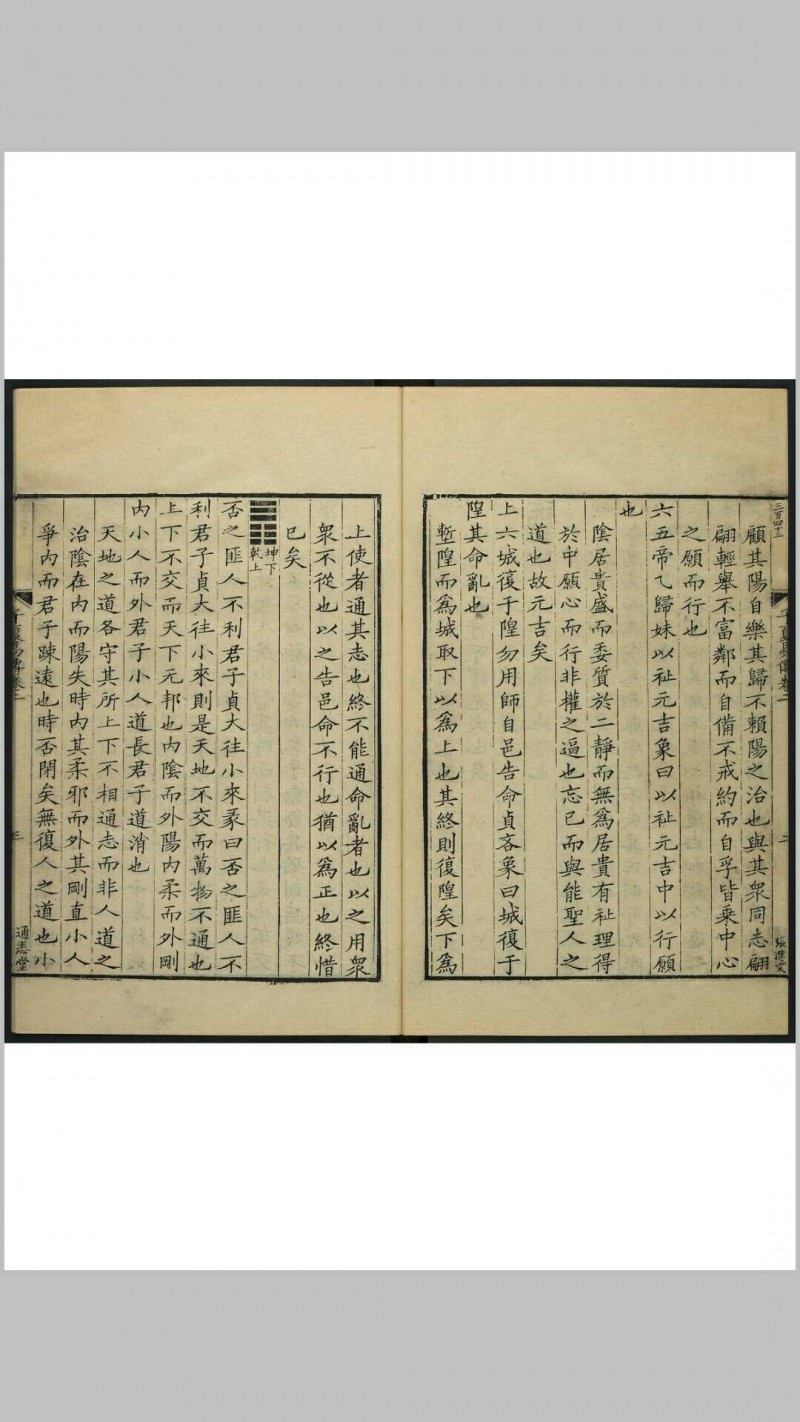 三百四三
張進文
顧其陽自樂其歸不賴陽之治也與其衆同志翩
翩輕舉不富鄰而自備不戒約而自孚皆乘中心
之願而行也
六五帝乙歸妹以祉元吉象曰以祉元吉中以行願
也
陰居貴盛而委質於二靜而無爲居貴有祉理得
於中願心而行非權之逼也忘已而與能聖人之
道也故元吉矣
上六城復于隍勿用師自邑告命貞吝象曰城復于
隍其命亂也
塹隍而爲城取下以爲上也其終則復隍矣下爲
上使者通其志也終不能通命亂者也以之用衆
衆不從也以之告邑命不行也猶以為正也終惜
已矣
坤下
乾上
否之匪人不利君子貞大往小來彖曰否之匪人不
利君子貞大往小來則是天地不交而萬物不通也
上下不交而天下无邦也内陰而外陽内柔而外剛
内小人而外君子小人道長君子道消也
天地之道各守其所上下不相通志而非人道之
治陰在内而陽失時内其柔邪而外其剛直小人
爭内而君子踈遠也時否閉矣無復人之道也小
子夏易傳卷二
三
通志堂